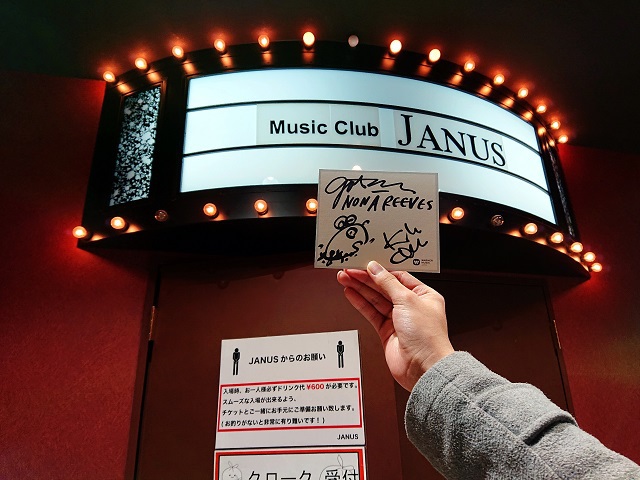 Music Club JANUS
NONA REEVES
JANUSからのお願い
入場時、お一人様必ずドリンク代¥600が必要です。
スムーズな入場が出来るよう、
チケットとご一緒にお手元にご準備お願い致します。
(お釣りがないと非常に有り難いです!)
JANUS
クローク 受付